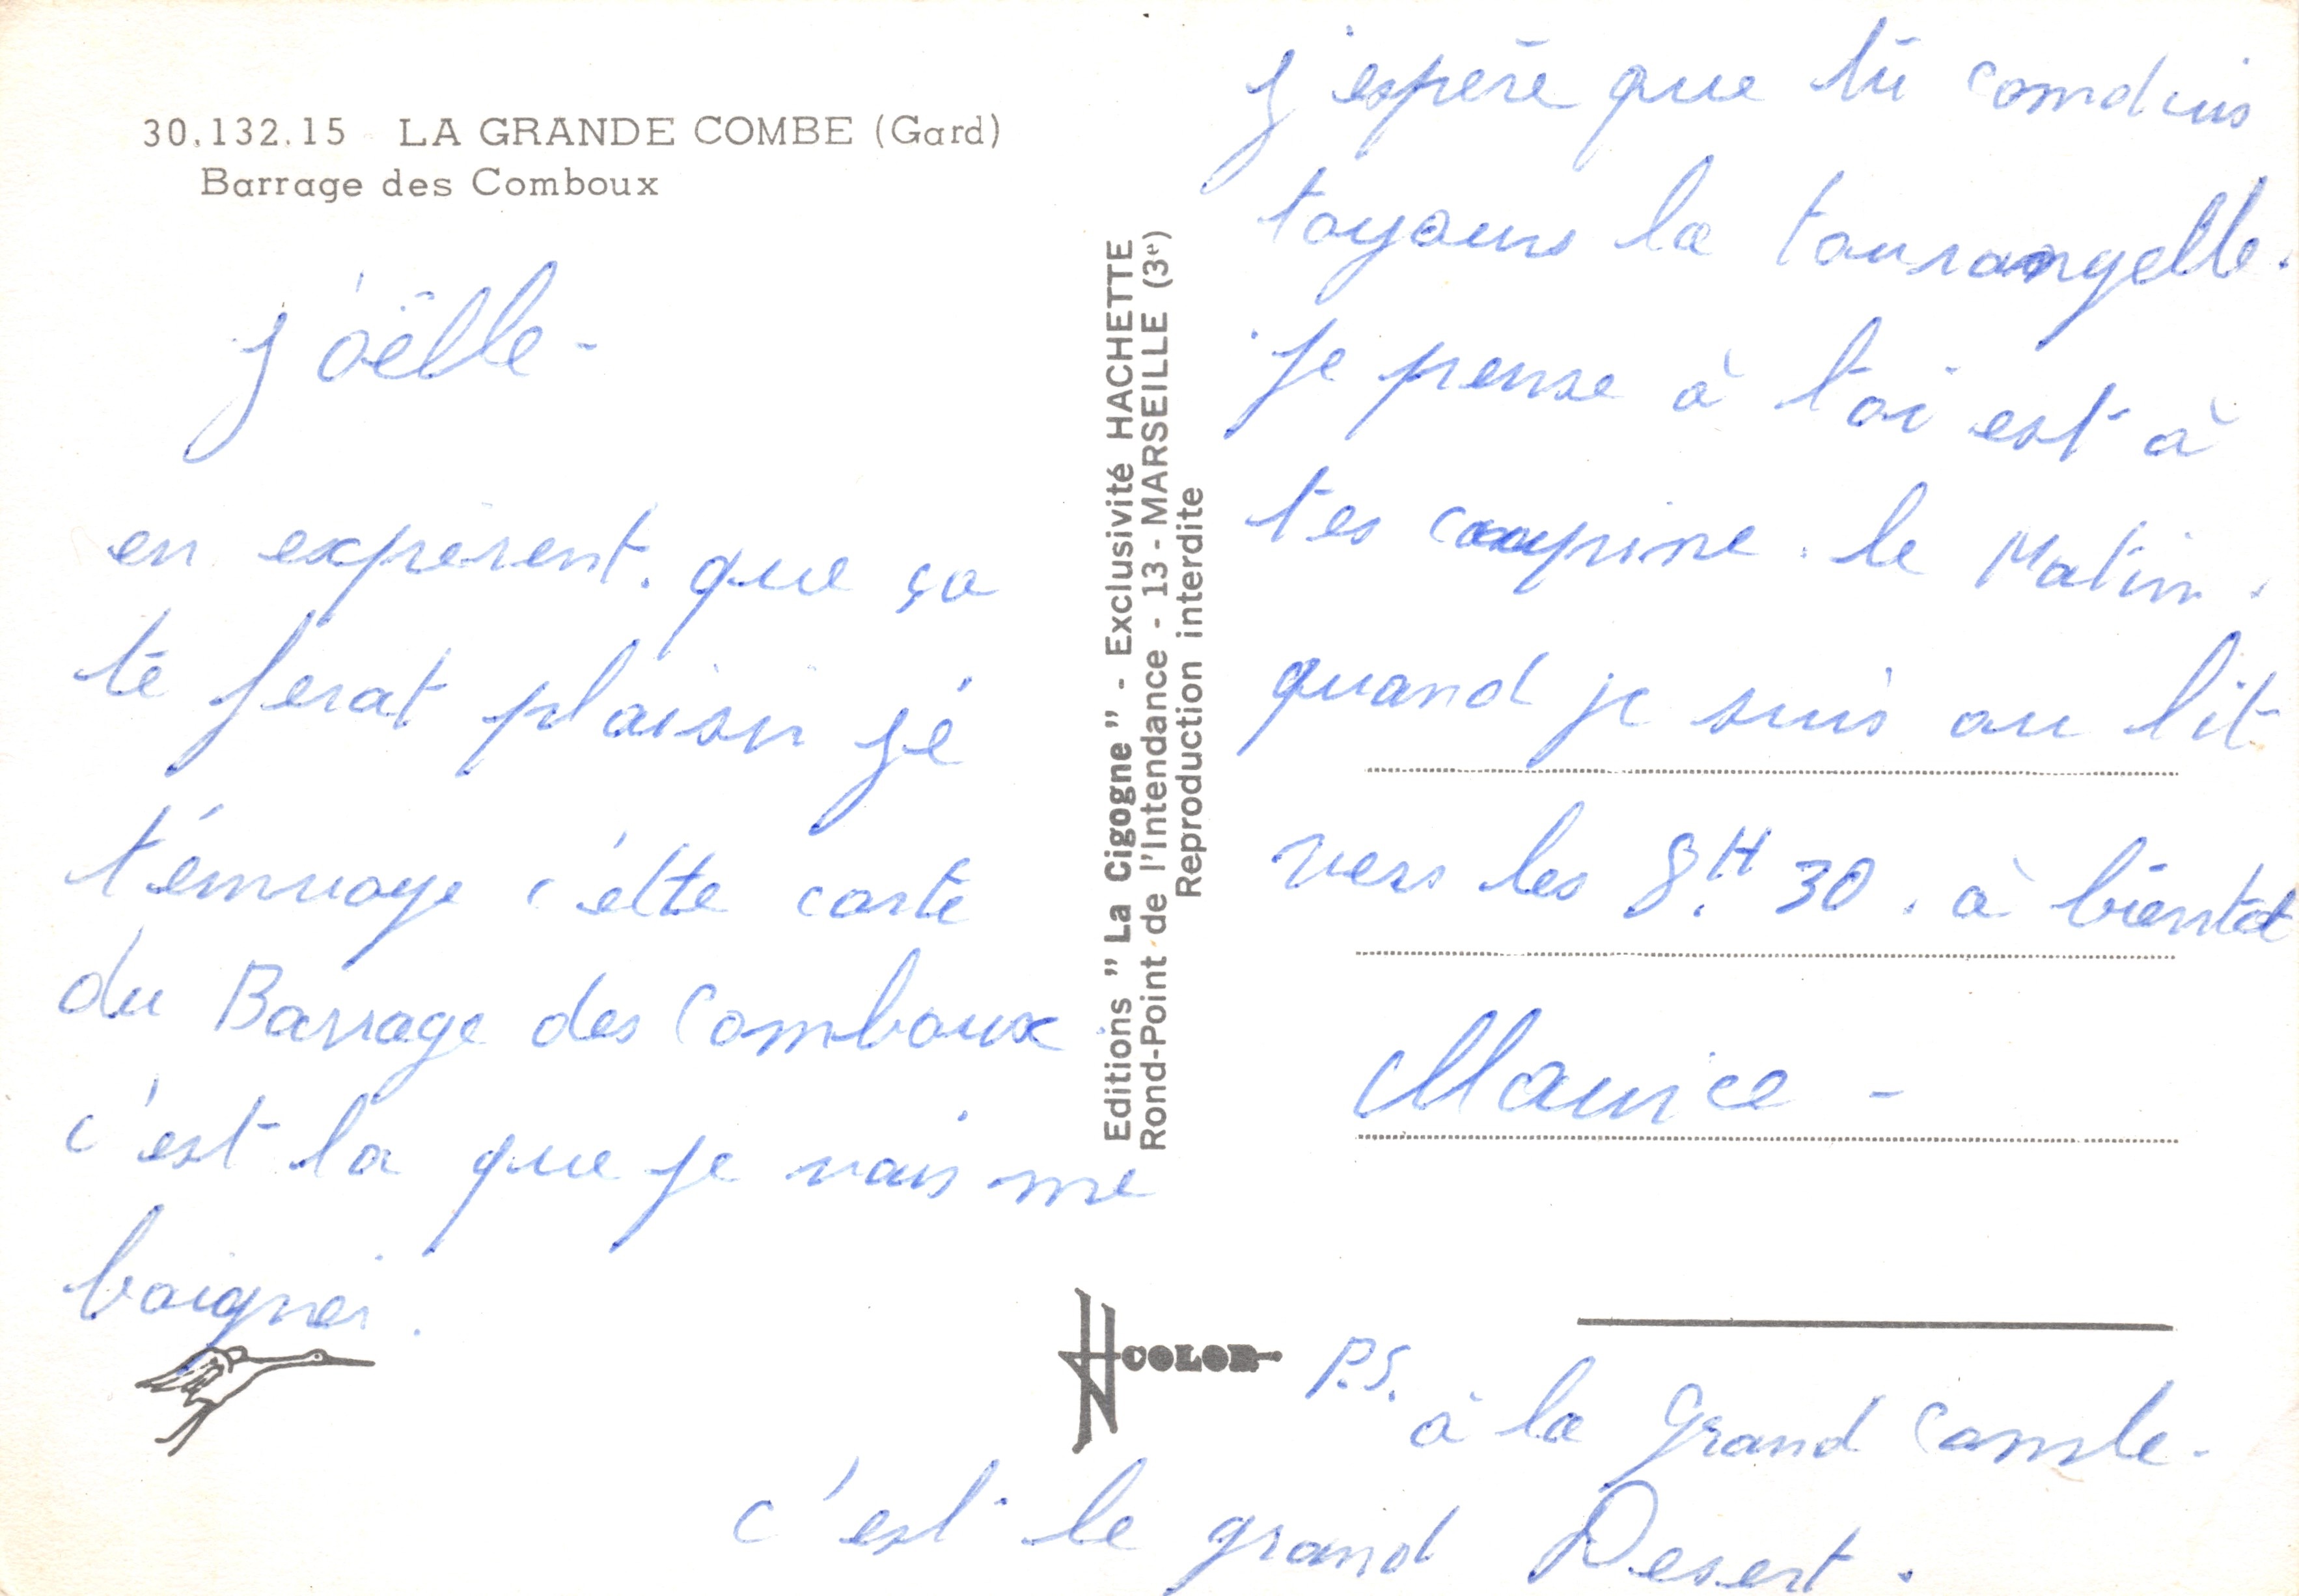 30.132.15 LA GRANDE COMBE (Gard)
Barrage des Comboux
Joëlle -
en expérent. que ça
te ferat plaisir je
t'envoye cette carte
du Barrage des Comboux
c'est la que je vais me
baigner.
Editions " La Cigogne " - Exclusivité HACHETTE
Rond-Point de l'Intendance - 13 - MARSEILLE (3e)
Reproduction interdite
j'espère que tu conduis
toujours la tourangelle.
je pense à toi est à
tes copine. le Matin.
quand je suis au lit
vers les 8.H 30. à bientot
Maurice -
COLOR
P.S. à la Grand Combe.
c'est le grand Desert.